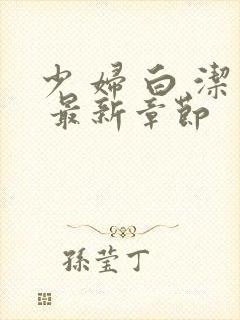 少婦白潔
最新章節
孫瑩丁